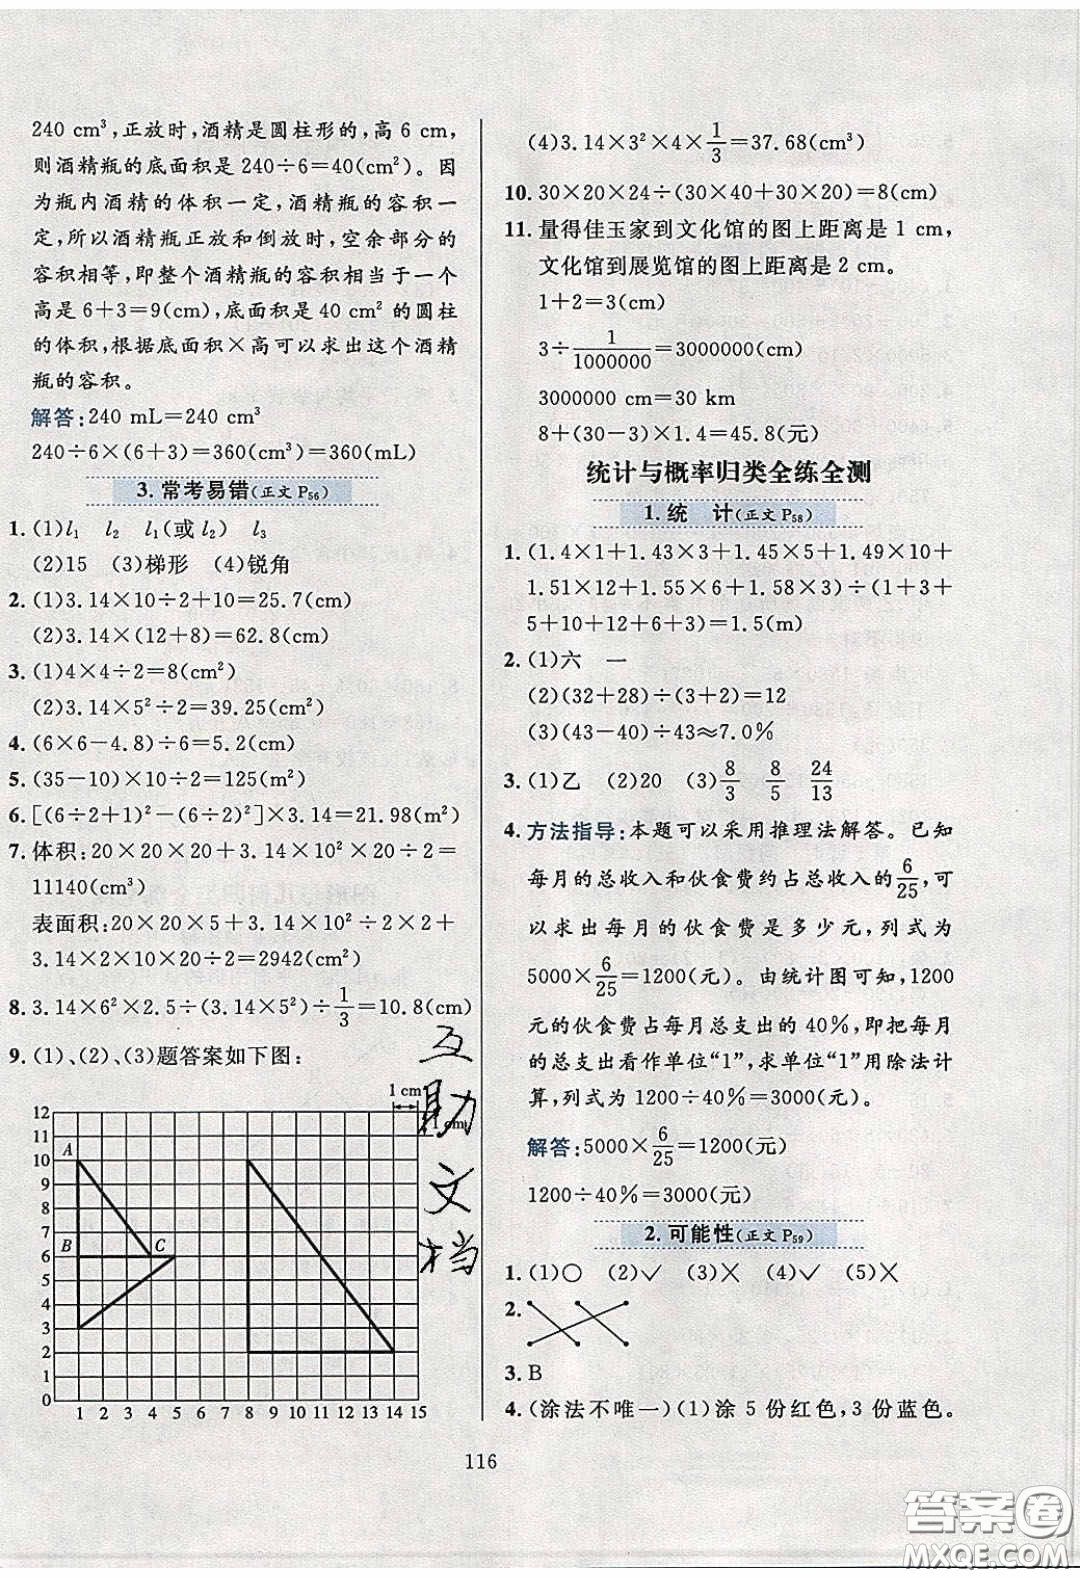 240 cm³,正放时,酒精是圆柱形的,高 6 cm,
则酒精瓶的底面积是 240÷6=40(cm²)。因
为瓶内酒精的体积一定,酒精瓶的容积一
定,所以酒精瓶正放和倒放时,空余部分的
容积相等,即整个酒精瓶的容积相当于一个
高是 6+3=9(cm),底面积是 40 cm² 的圆柱
的体积,根据底面积×高可以求出这个酒精
瓶的容积。
解答:240 mL=240 cm³
240÷6×(6+3)=360(cm³)=360(mL)
3. 常考易错(正文 P56)
1. (1)l₁ l₂ l₁(或 l₂) l₃
(2)15 (3)梯形 (4)锐角
2. (1)3.14×10÷2+10=25.7(cm)
(2)3.14×(12+8)=62.8(cm)
3. (1)4×4÷2=8(cm²)
(2)3.14×5²÷2=39.25(cm²)
4. (6×6-4.8)÷6=5.2(cm)
5. (35-10)×10÷2=125(m²)
6. [(6÷2+1)²-(6÷2)²]×3.14=21.98(m²)
7. 体积:20×20×20+3.14×10²×20÷2=
11140(cm³)
表面积:20×20×5+3.14×10²÷2×2+
3.14×2×10×20÷2=2942(cm²)
8. 3.14×6²×2.5÷(3.14×5²)÷1/3=10.8(cm)
9. (1)、(2)、(3)题答案如下图:
互
助
文
档
1 cm
1 cm
12
11
10
9
8
7
6
5
4
3
2
1
0
A
B
C
1 2 3 4 5 6 7 8 9 10 11 12 13 14 15
(4)3.14×3²×4×1/3=37.68(cm³)
10. 30×20×24÷(30×40+30×20)=8(cm)
11. 量得佳玉家到文化馆的图上距离是 1 cm,
文化馆到展览馆的图上距离是 2 cm。
1+2=3(cm)
3÷1/1000000=3000000(cm)
3000000 cm=30 km
8+(30-3)×1.4=45.8(元)
统计与概率归类全练全测
1. 统 计(正文 P58)
1. (1.4×1+1.43×3+1.45×5+1.49×10+
1.51×12+1.55×6+1.58×3)÷(1+3+
5+10+12+6+3)=1.5(m)
2. (1)六 一
(2)(32+28)÷(3+2)=12
(3)(43-40)÷43≈7.0%
3. (1)乙 (2)20 (3)8/3 8/5 24/13
4. 方法指导:本题可以采用推理法解答。已知
每月的总收入和伙食费约占总收入的6/25,可
以求出每月的伙食费是多少元,列式为
5000×6/25=1200(元)。由统计图可知,1200
元的伙食费占每月总支出的 40%,即把每月
的总支出看作单位“1”,求单位“1”用除法计
算,列式为 1200÷40%=3000(元)。
解答:5000×6/25=1200(元)
1200÷40%=3000(元)
2. 可能性(正文 P59)
1. (1)○ (2)✓ (3)× (4)✓ (5)×
2.
3. B
4. (涂法不唯一)(1)涂 5 份红色,3 份蓝色。
116
答案圈
MXQE.COM